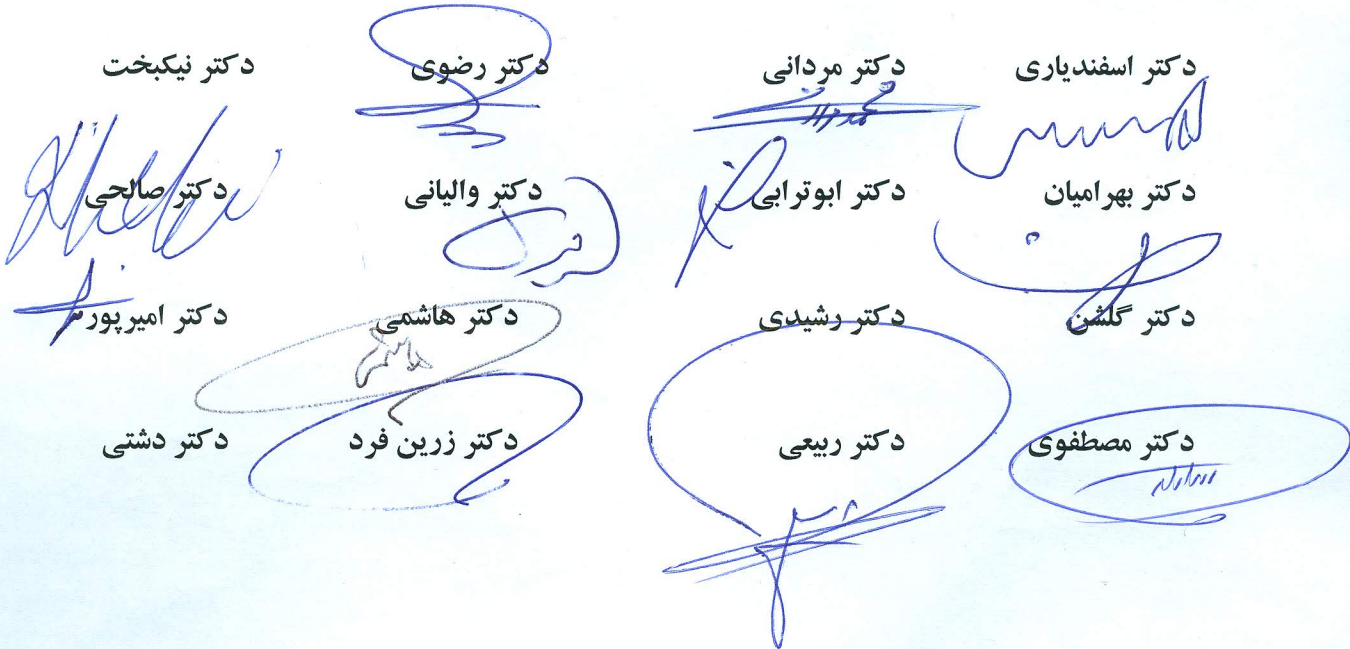 دکتر اسفندیاری دکتر مردانی دکتر رضوی دکتر نیکبخت
دکتر بهرامیان دکتر ابوترابی دکتر والیانی دکتر صالحی
دکتر گلشن دکتر رشیدی دکتر هاشمی دکتر امیرپور
دکتر مصطفوی دکتر ربیعی دکتر زرین فرد دکتر دشتی